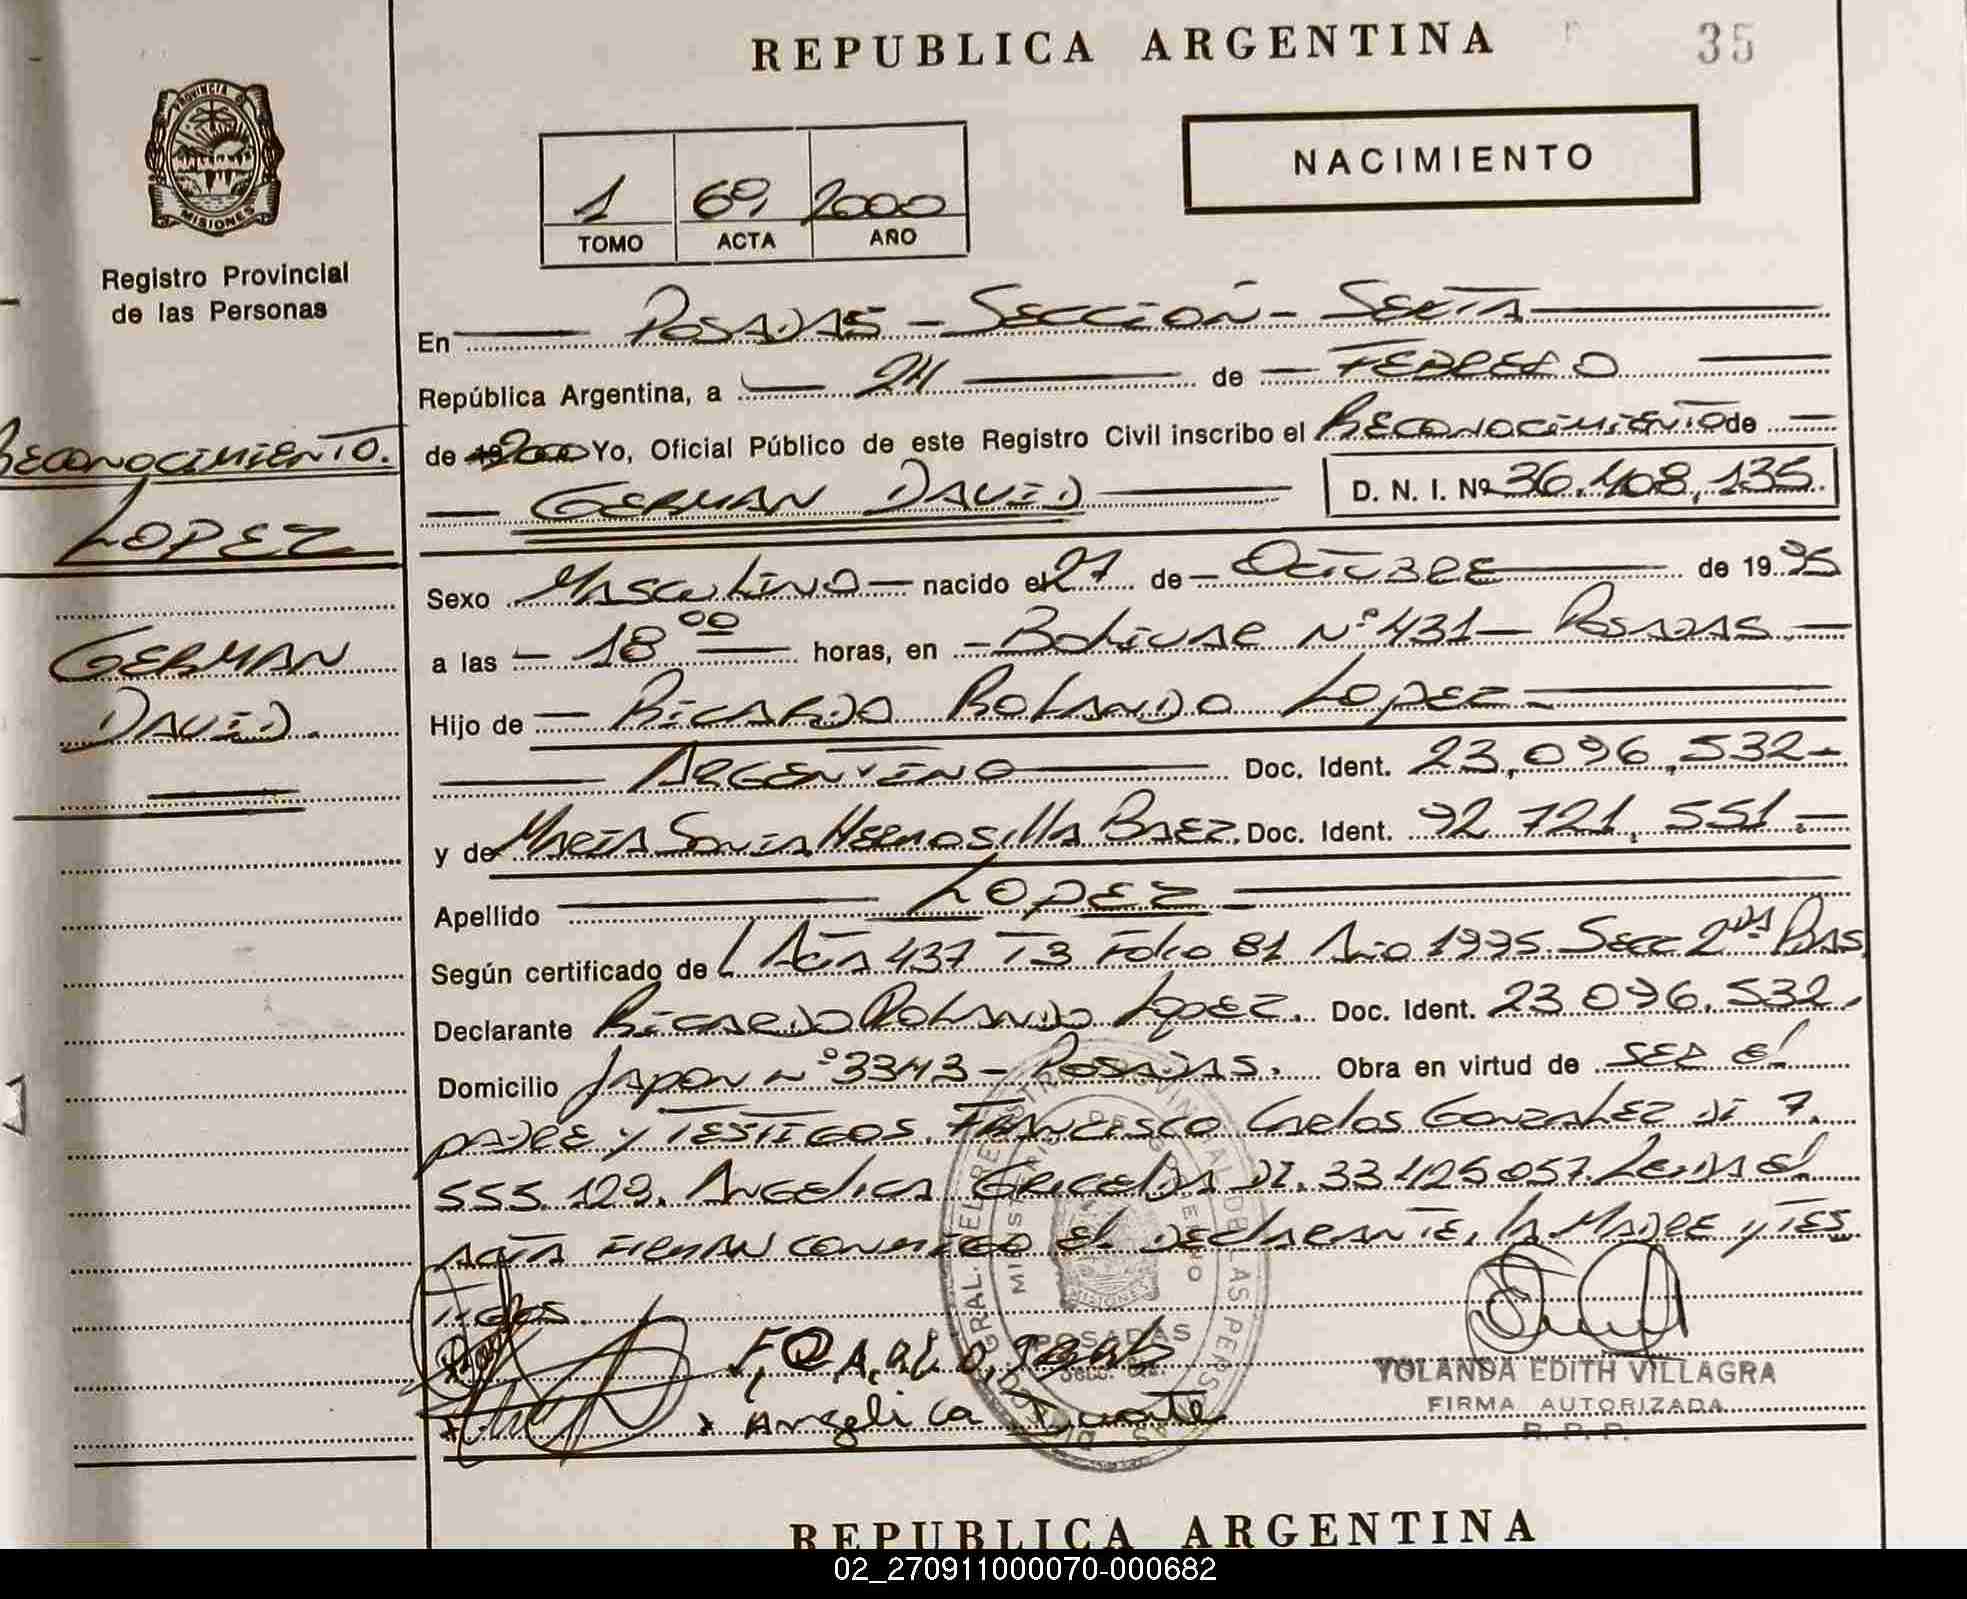 REPUBLICA ARGENTINA
35
PROVINCIA D
MISIONES
Registro Provincial
de las Personas
NACIMIENTO
1 69, 2000
TOMO ACTA AÑO
En POSADAS - SECCION - SEXTA
República Argentina, a 24 de FEBRERO
de 2000 Yo, Oficial Público de este Registro Civil inscribo el RECONOCIMIENTO de
GERMAN DAVID D. N. I. Nº 36.408,135.
RECONOCIMIENTO.
LOPEZ
GERMAN
DAVID.
Sexo MASCULINO nacido el 27 de OCTUBRE de 1995
a las 18 00 horas, en BOLIVAR Nº 431 - POSADAS
Hijo de RICARDO ROLANDO LOPEZ
ARGENTINO Doc. Ident. 23,096,532-
y de MARIA SONIA HERMOSILLA BAEZ. Doc. Ident. 92 721, 551.-
Apellido LOPEZ
Según certificado de ACTA 437 T3 Folio 81 Año 1995. Secc 2da Pdas
Declarante RICARDO ROLANDO LOPEZ. Doc. Ident. 23 096.532.
Domicilio JAPON Nº 3343 - POSADAS. Obra en virtud de SER el
PADRE Y TESTIGOS. FRANCISCO CARLOS GONZALEZ DI 7.
555.129. ANGELICA GRICELDA DI. 33 425 057. Leida el
ACTA FIRMAN CONMIGO el DECLARANTE, la MADRE y TES
TIGOS.
Angelica Duarte
YOLANDA EDITH VILLAGRA
FIRMA AUTORIZADA
R. P. P.
MINISTERIO DE GOBIERNO
MISIONES
POSADAS
REPUBLICA ARGENTINA
02_270911000070-000682